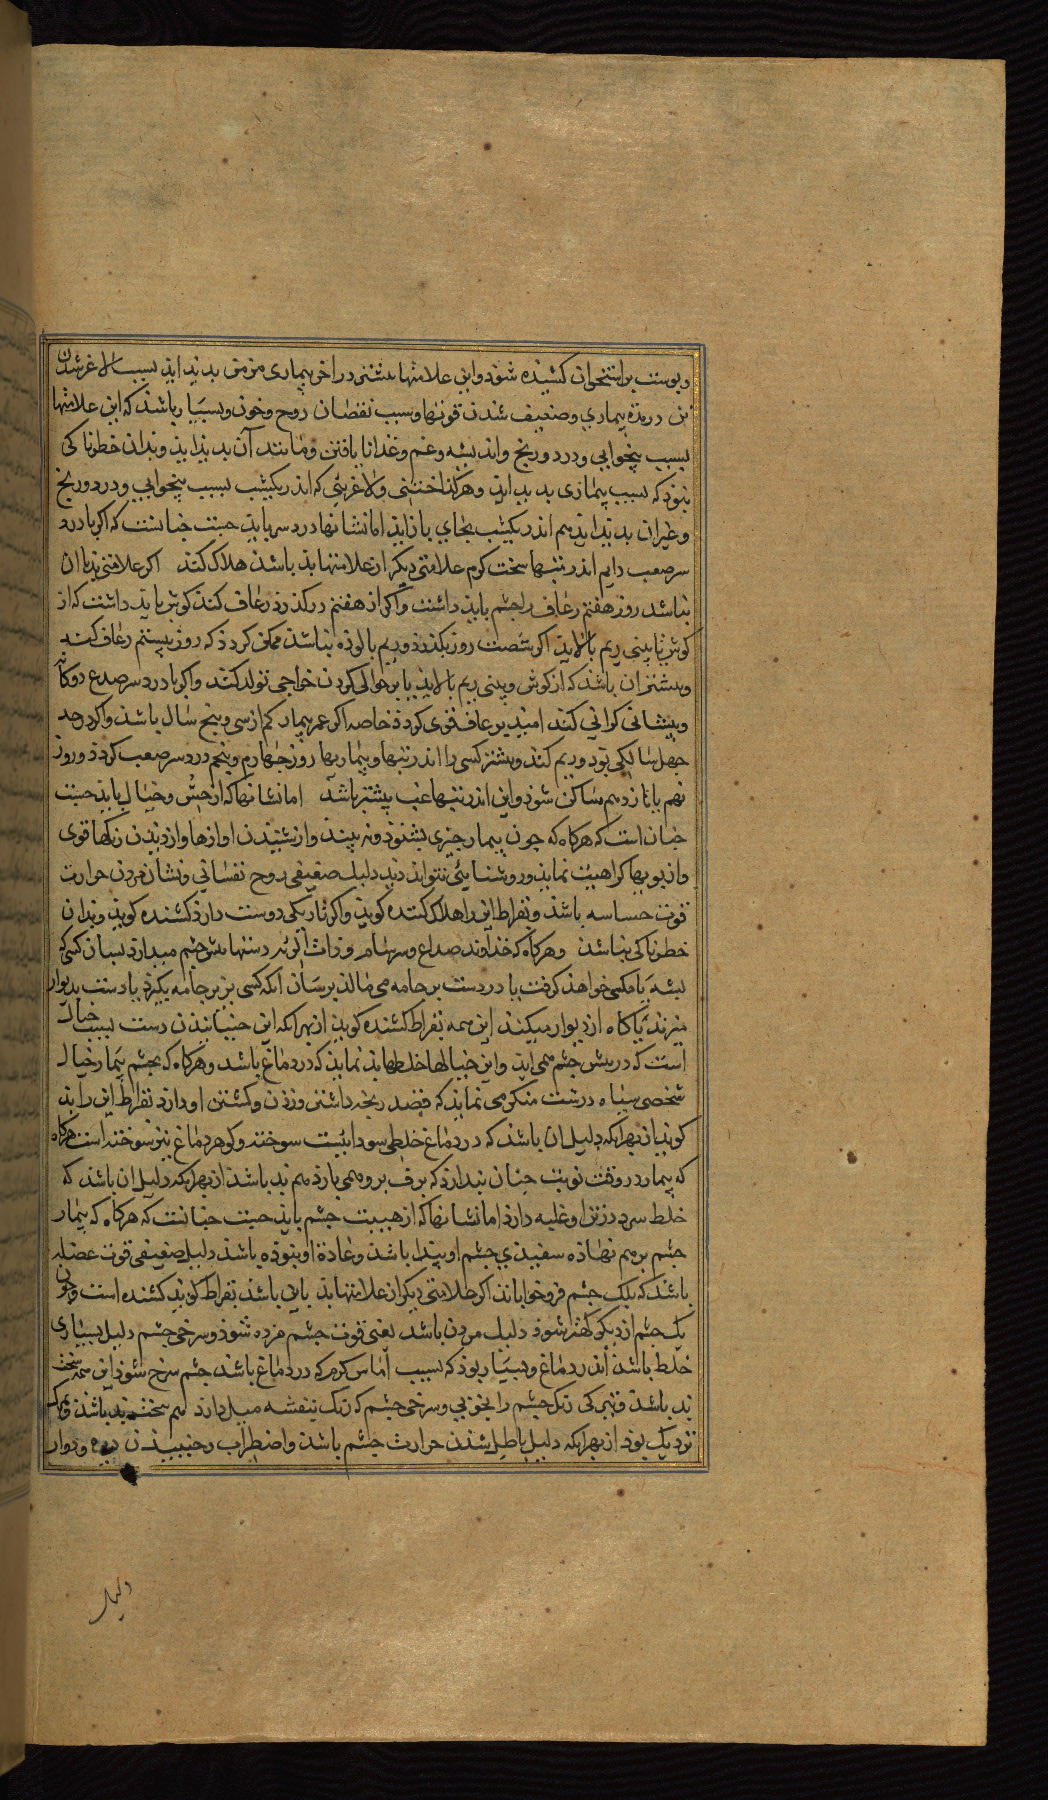 و پوست بر استخوان کشیده شود و این علامتها بیشتر در اخر بیماری مزمن بدید اید بسبب لاغر شدن
تن در مده بیماری و ضعیف شدن قوتها و سبب نقصان روح و خون و بسیار باشد که این علامتها
بسبب بیخوابی و درد و رنج و اندیشه و غم و غذا نایافتن و مانند آن بدید اید و بدان خطرناکی
نبود که بسبب بیماری بدید اید و هر گذاختنی و لاغریی که اندر یکشب بسبب بیخوابی و درد و رنج
و غیر ان بدید اید هم اندر یکشب بجای باز اید اما نشانها درد سر باید جست چنانست که اکر با درد
سر صعب دایم اندر تبها سخت کرم علامتی دیکر از علامتها بد باشد هلاک کند اکر علامتی بد با ان
نباشد روز هفتم رعاف را چشم باید داشت و اکر از هفتم در کذرد رعاف کند کوش باید داشت که از
کوش یا بینی ریم بالاید اکر شصت روز بکذرد و ریم بالوده نباشد ممکن کردد که روز بیستم رعاف کند
و بیشتر ان باشد که از کوش و بینی ریم بالاید یا بر حوالی کردن خراجی تولد کند و اکر با درد سر صدغ دوکانه
و پیشانی کرانی کند امید بر عاف قوی کردد خاصه اکر عمر بیمار کم از سی و پنج سال باشد و اکر در حد
چهل سالکی بود و ریم کند و بیشتر کسی را اندر تبها و بیماریها روز چهارم و پنجم درد سر صعب کردد و روز
نهم یا یازدهم ساکن شود و این اندر تبها غب بیشتر باشد اما نشانها که از حس و خیال باید جست
چنان است که هرکاه که چون بیمار چیزی نشنود و نه بیند و از شنیدن اوازها و از دیدن رنکها قوی
و از بویها کراهیت نماید و روشنایی نتواند دید دلیل ضعیفی روح نفسانی و نشان مردن حرارت
قوت حساسه باشد و بقراط این را هلاک کننده کوید و اکر تاریکی دوست دارد کشنده کوید و بدان
خطرناکی نباشد و هرکاه که خداوند صداع و سرسام و ذات الریه دستها پیش چشم میدارد بسان کسی که
پشه یا مکسی خواهد کرفت یا در دست بر جامه می مالد برسان انکه کسی پرز بر جامه بکیرد یا دست بدیوار
میزند یا کاه از دیوار میکند این همه بقراط کشنده کوید از بهر انکه این جنبانیدن دست بسبب خیال
است که در پیش چشم می اید و این خیالها خلطها بد نماید که در دماغ باشد و هرکاه که بچشم بیمار خیال
شخصی سیاه درشت منکر می نماید که قصد رنجه داشتن و زدن و کشتن او دارد بقراط این را بد
کوید از بهر انکه دلیل ان باشد که در دماغ خلطی سودائیست سوخته و کوهر دماغ نیز سوخته است هرکاه
که بیمار در وقت نوبت چنان پندارد که برف برو همی بارد هم بد باشد از بهر انکه دلیل ان باشد که
خلط سرد در تن او غلبه دارد اما نشانها که از هیبت چشم باید جست چنانست که هرکاه که بیمار
چشم بر هم نهاده سفیدی چشم او پیدا باشد و عادة او نبوده باشد دلیل ضعیفی قوت عضله
باشد که پلک چشم فرو خواباند اکر علامتی دیکر از علامتها بد باین باشد بقراط کوید کشنده است و چون
یک چشم از دیکر کهتر شود دلیل مردن باشد یعنی قوت چشم مرده شود و سرخی چشم دلیل بسیاری
خلط باشد اندر دماغ و بسیار بود که بسبب آماس کرم که در دماغ باشد چشم سرخ شود این همه سخت
بد باشد و تیرکی رنک چشم را بخوبی و سرخی چشم که رنک بنفشه میل دارد هم سخت بد باشد و بمرک
نزدیک بود از بهر انکه دلیل باطل شدن حرارت چشم باشد و اضطراب و جنبیدن دیده و دوار
دلیل